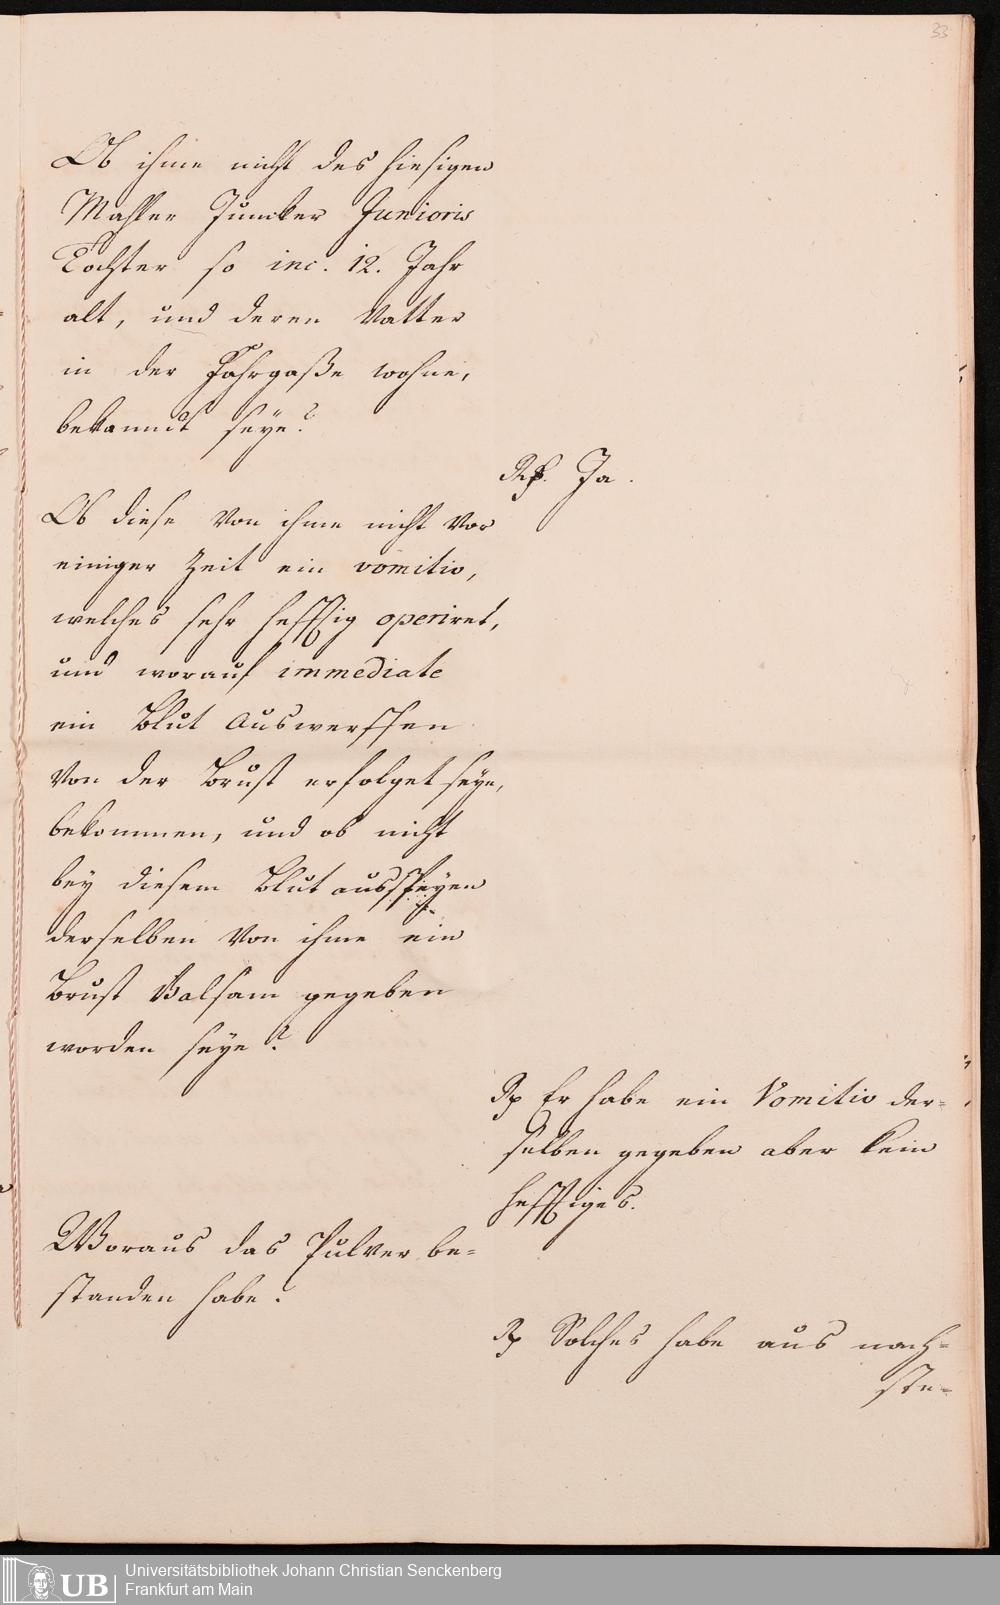 33
Ob ihme nicht des hiesigen
Mahler Juncker Junioris
Tochter so inc. 12. Jahr
alt, und deren Vatter
in der Fahrgaße wohne,
bekanndt seye?
Rp. Ja.
Ob diese von ihme nicht vor
einiger Zeit ein vomitiv,
welches sehr hefftig operiret,
und worauf immediate
ein Blut Auswerffen
von der Brust erfolget seye,
bekommen, und ob nicht
bey diesem Blut ausspeyen
derselben von ihme ein
Brust Balsam gegeben
worden seye?
Rp Er habe ein Vomitiv der-
selben gegeben aber kein
hefftiges.
Woraus das Pulver be-
standen habe?
Rp Solches habe aus nach-
ste-
UB
Universitätsbibliothek Johann Christian Senckenberg
Frankfurt am Main